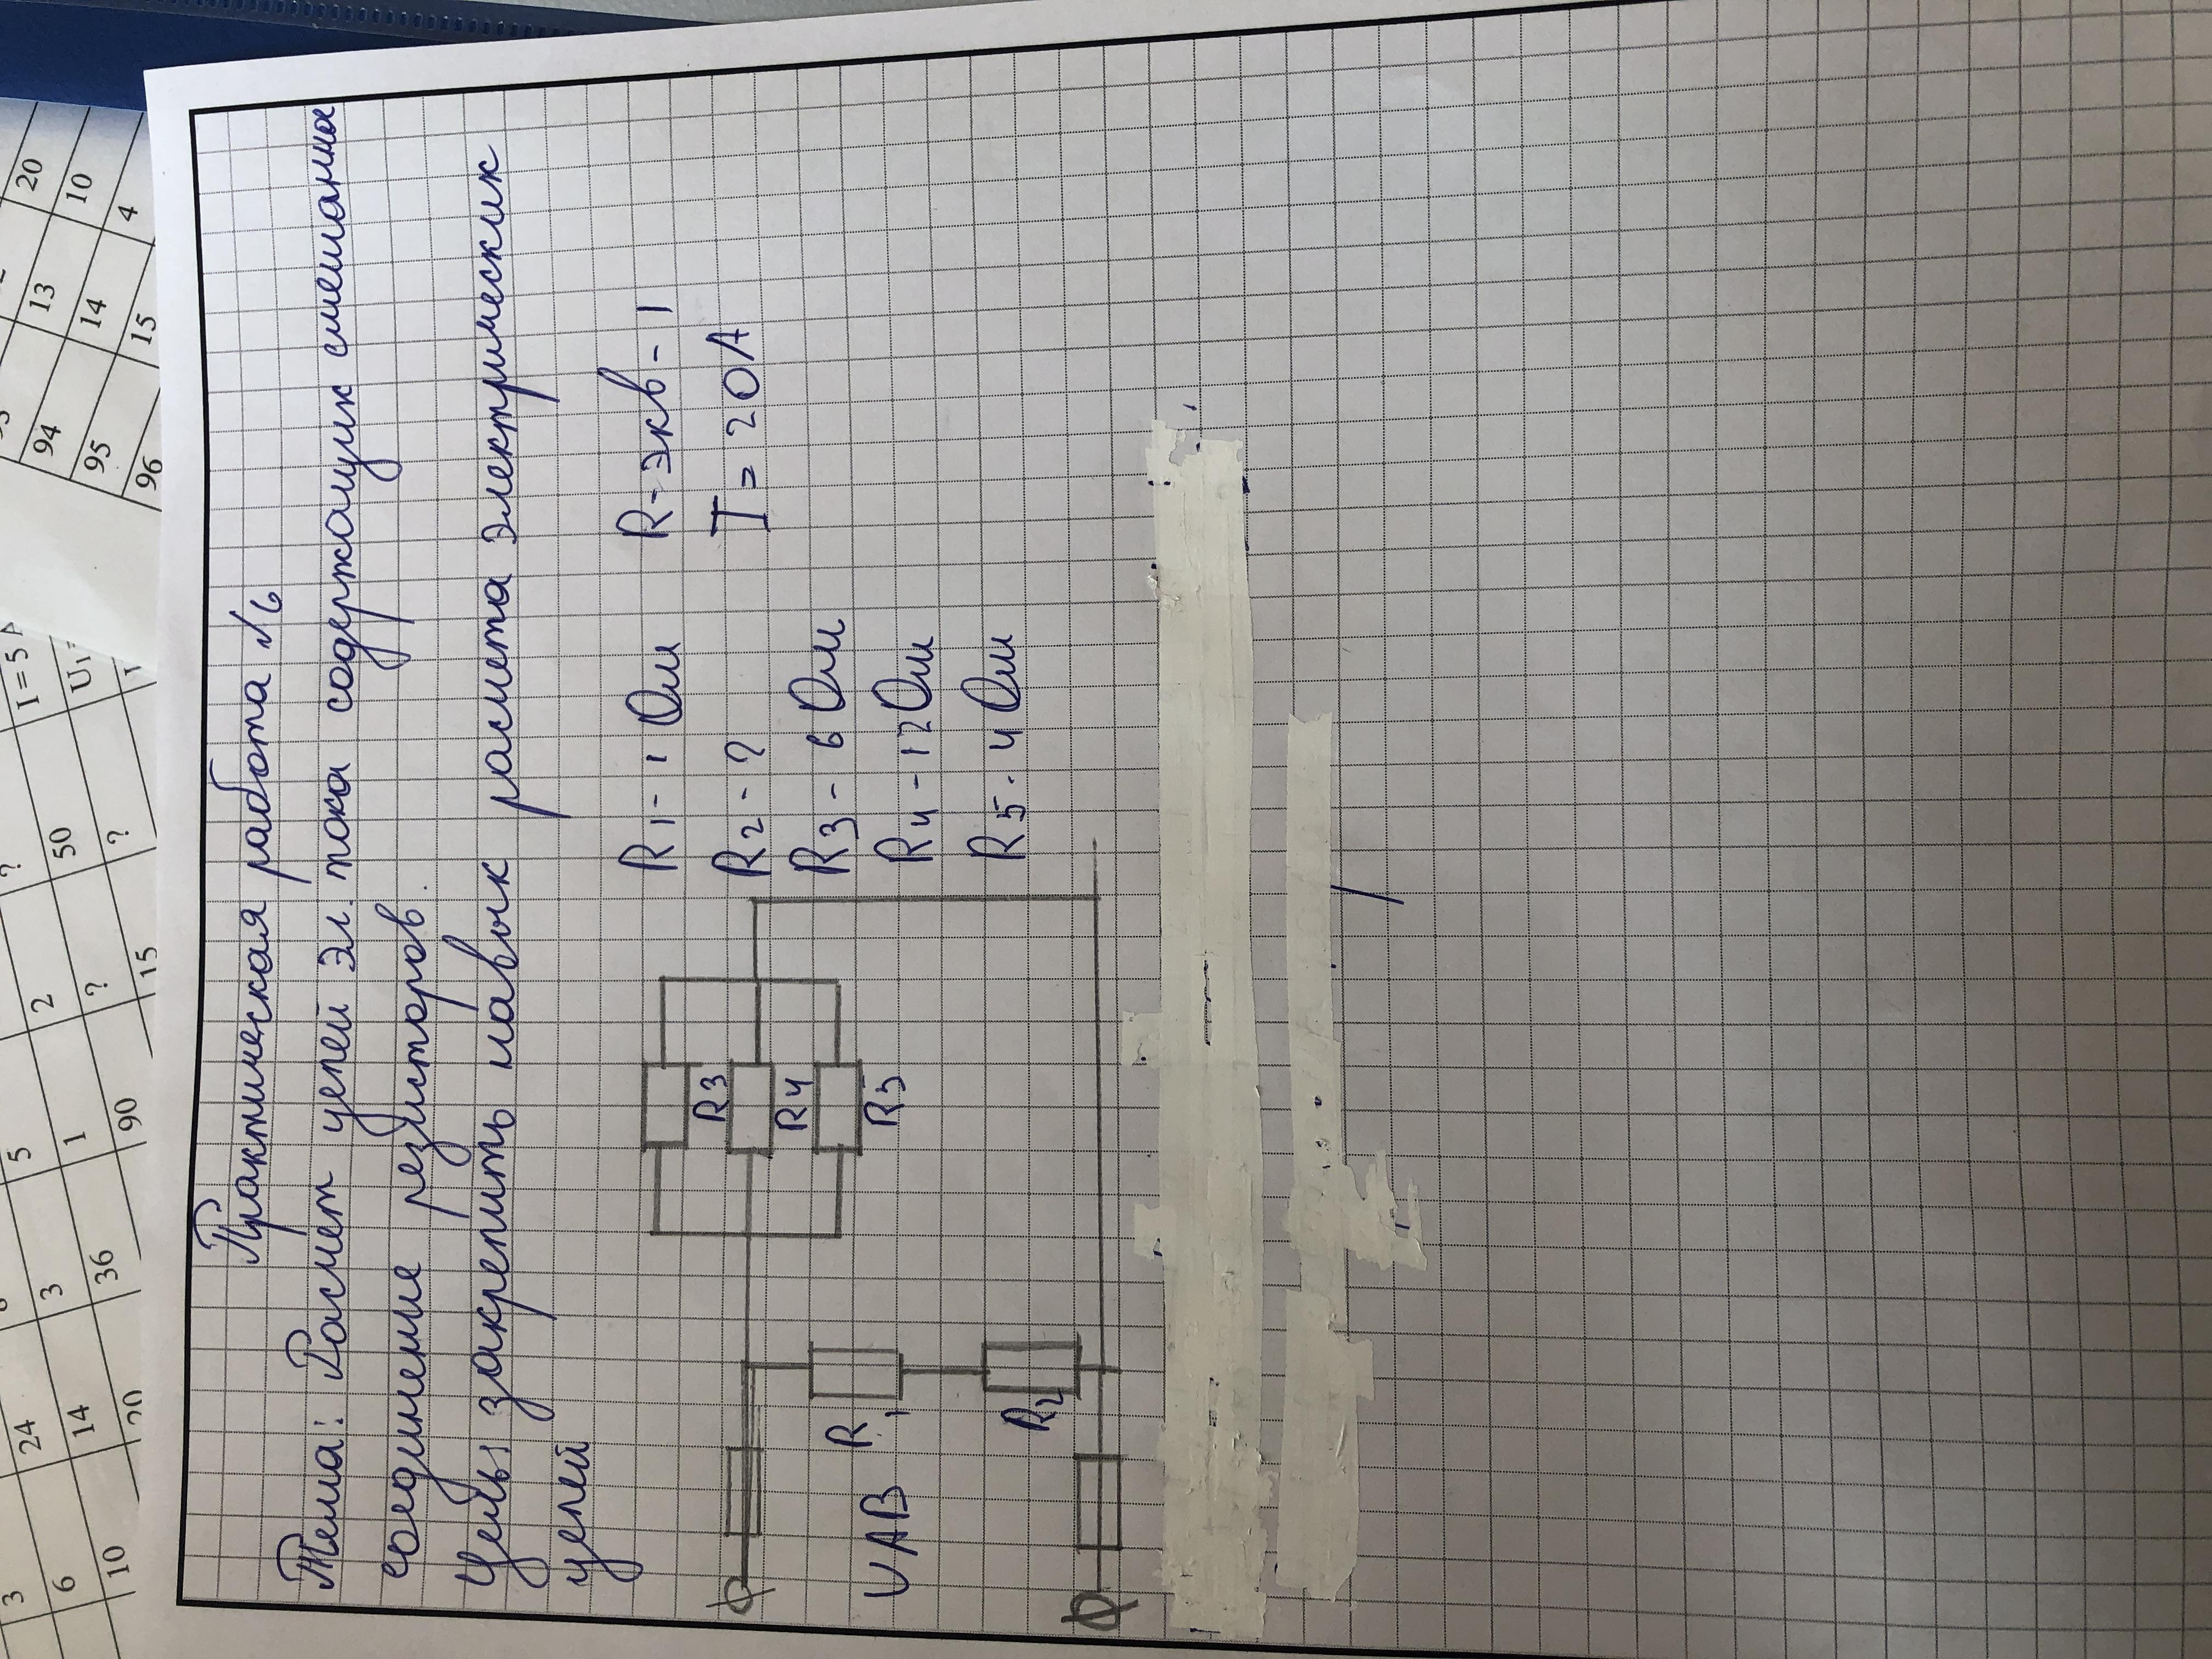 Практическая работа №6
Тема: Расчет цепей эл. тока содержащих смешанна
соединение резисторов.
Цель: закрепить навык расчета электрических
цепей
R1 - 1 Ом
R2 - ?
R3 - 6 Ом
R4 - 12 Ом
R5 - 4 Ом
R-экв - 1
I = 20A
R3
R4
R5
R1
R2
UAB
20
13
10
94
14
4
95
15
96
I = 5
?
U1
2
50
5
?
?
1
15
24
3
90
3
14
36
6
20
10